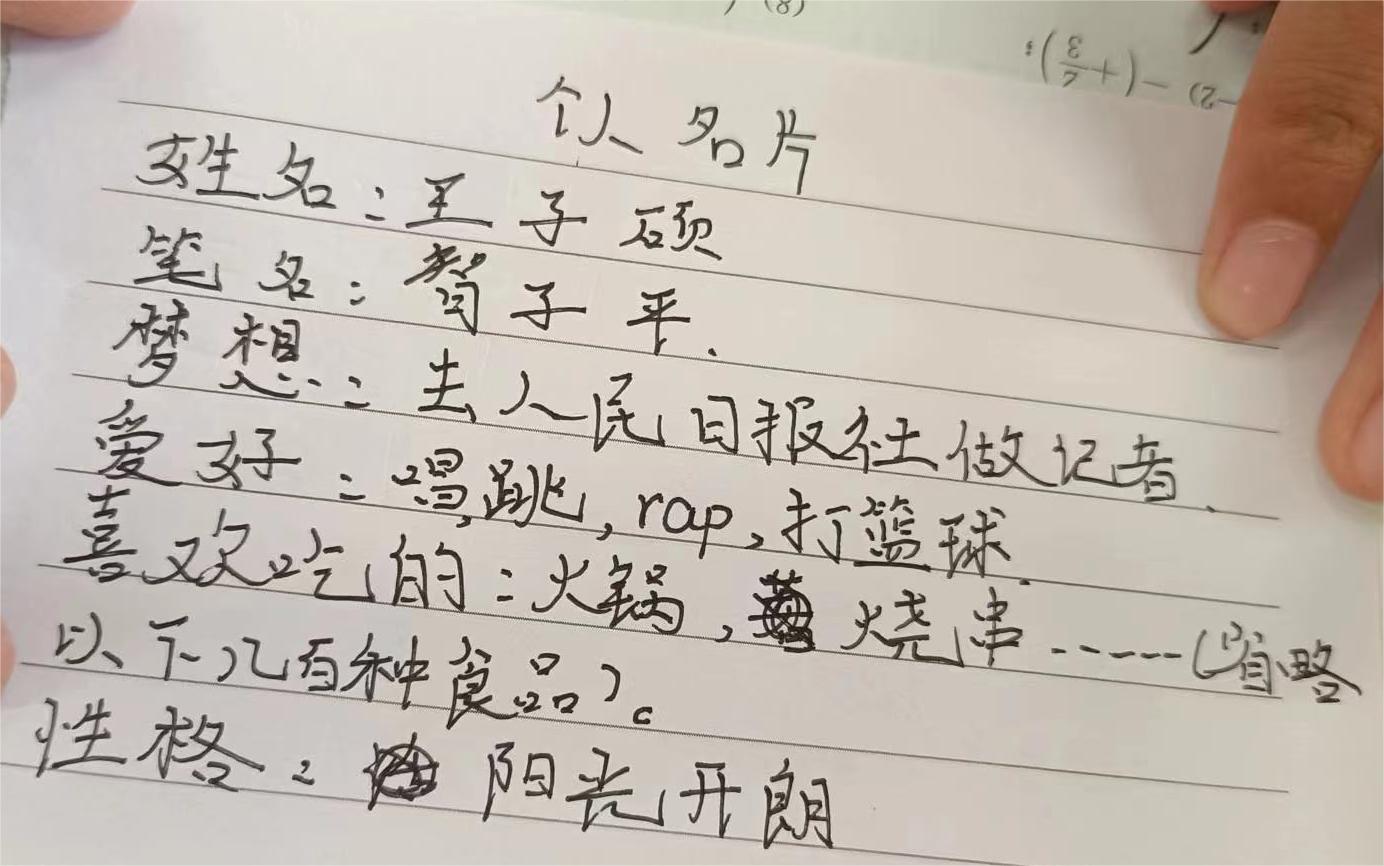 (8)
-2) - (+2/3);
个人名片
姓名：王子硕
笔名：荀子平.
梦想：去人民日报社做记者.
爱好：唱,跳,rap,打篮球.
喜欢吃的：火锅,烧串……(省略
以下几百种食品)。
性格：阳光开朗